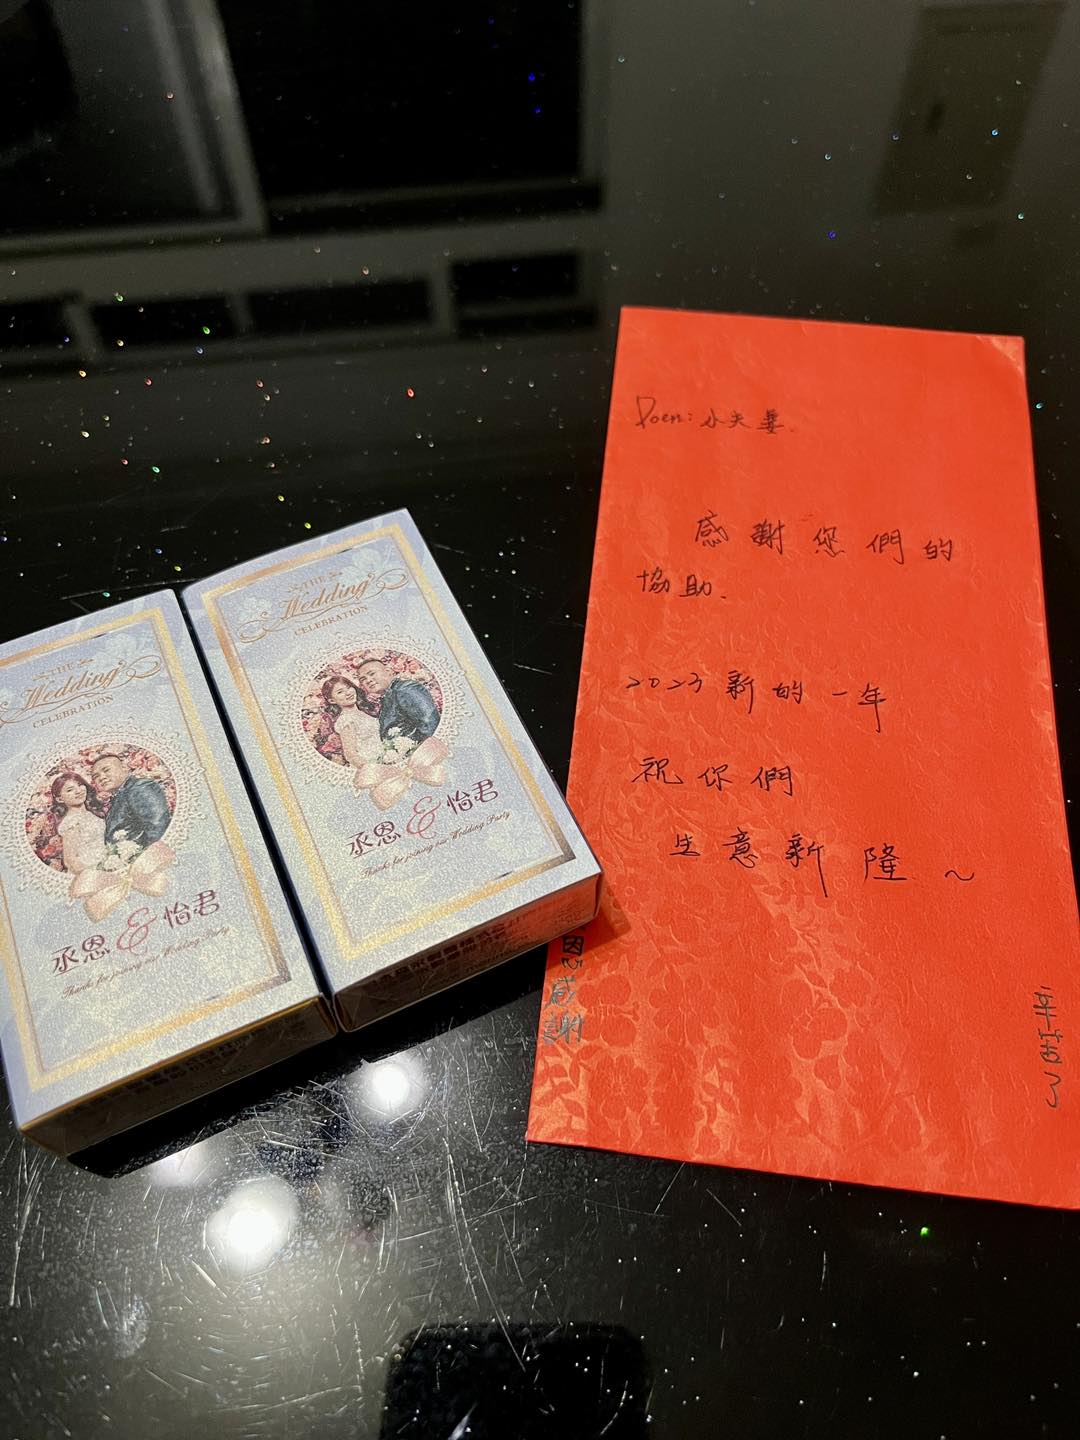 THE
Wedding
CELEBRATION
丞恩 & 怡君
Thanks for joining our Wedding Party
THE
Wedding
CELEBRATION
丞恩 & 怡君
Thanks for joining our Wedding Party
Poen: 小夫妻.
感謝您們的
協助.
2023 新的一年
祝你們
生意新隆~
感謝